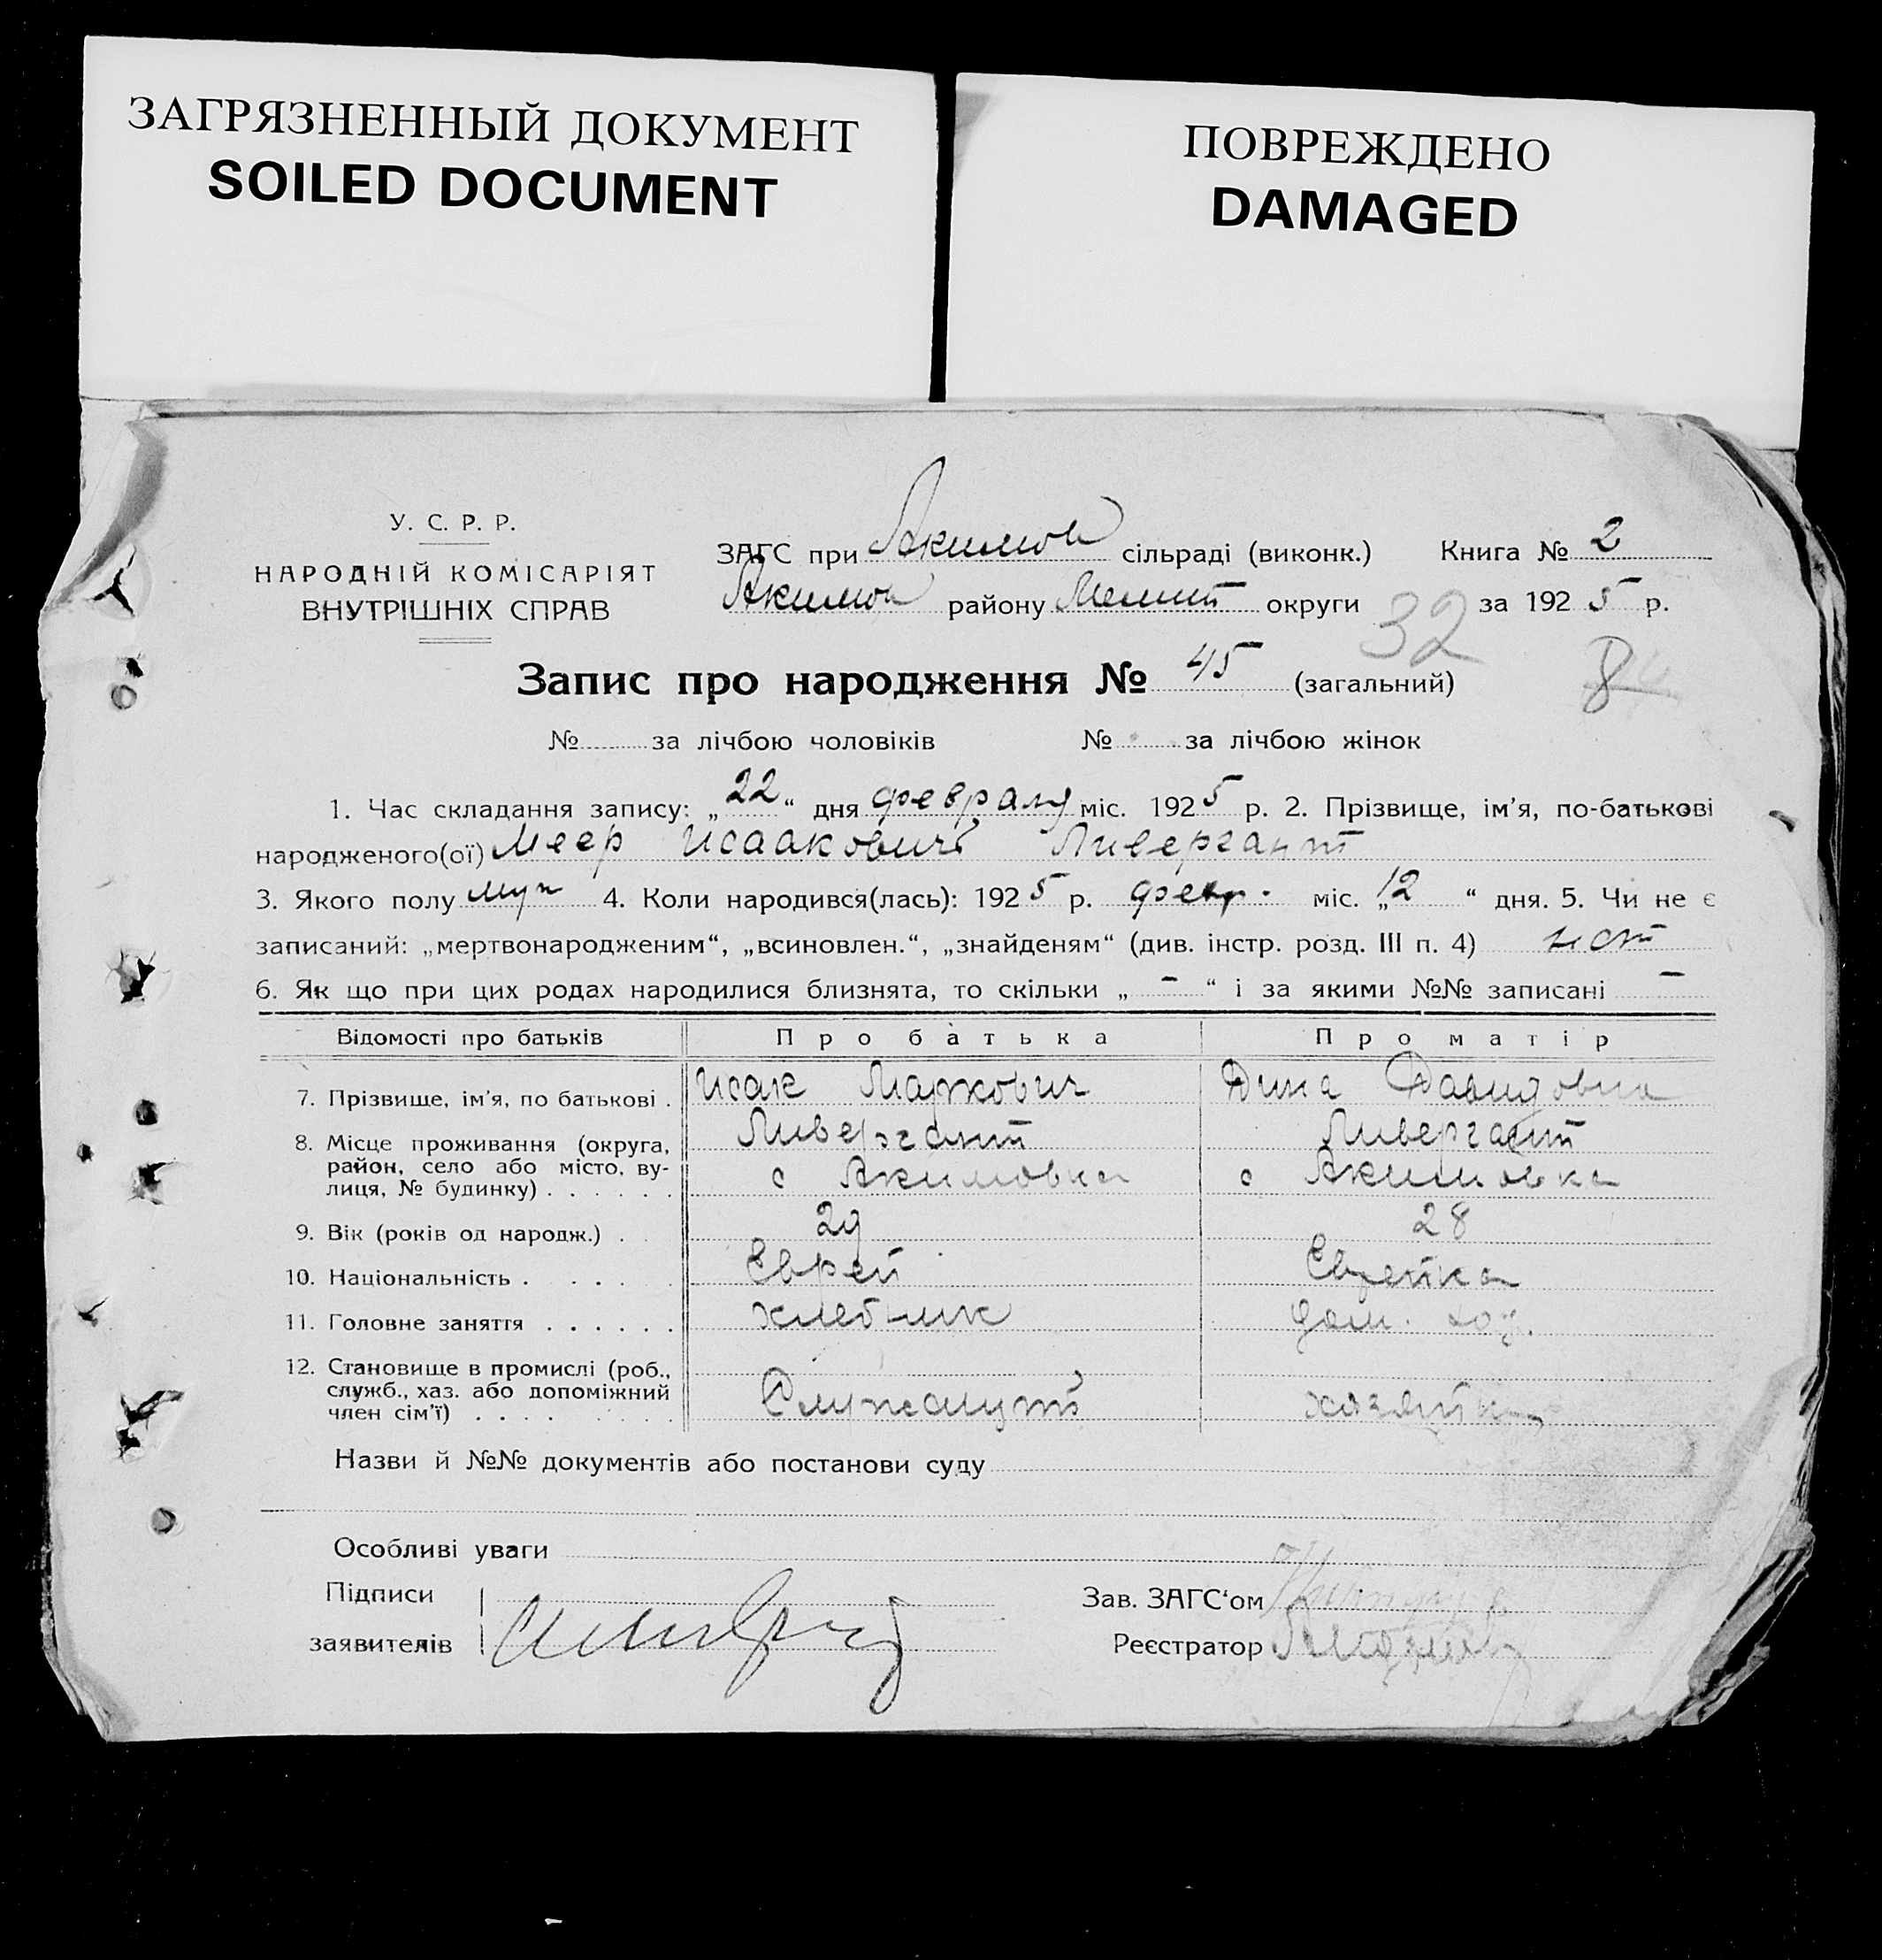 ЗАГРЯЗНЕННЫЙ ДОКУМЕНТ
SOILED DOCUMENT
ПОВРЕЖДЕНО
DAMAGED
У. С. Р. Р.
НАРОДНІЙ КОМІСАРІЯТ
ВНУТРІШНІХ СПРАВ
ЗАГС при Акимов сільраді (виконк.) Книга № 2
Акимов району Мелит округи за 1925 р.
32
Запис про народження № 45 (загальний)
№ за лічбою чоловіків № за лічбою жінок
1. Час складання запису: „22“ дня февраля міс. 1925 р. 2. Прізвище, ім’я, по-батькові
народженого(ої) Меер Исаакович Ливергант
3. Якого полу муж 4. Коли народився(лась): 1925 р. февр. міс. „12“ дня. 5. Чи не є
записаний: „мертвонародженим“, „всиновлен.“, „знайденям“ (див. інстр. розд. III п. 4) нет
6. Як що при цих родах народилися близнята, то скільки „ – “ і за якими №№ записані –
Відомості про батьків Про батька Про матір
7. Прізвище, ім’я, по батькові . Исак Маркович Дина Давидовна
Ливергант Ливергант
8. Місце проживання (округа,
район, село або місто, ву-
лиця, № будинку) . . . . . . с Акимовка с Акимовка
9. Вік (років од народж.) . 29 28
10. Національність . . . . . Еврей Еврейка
11. Головне заняття . . . . . . хлебник дом. хоз.
12. Становище в промислі (роб.,
служб., хаз. або допоміжний
член сім’ї) . . . . Служащий хозяйка
Назви й №№ документів або постанови суду
Особливі уваги
Підписи
заявителів
Зав. ЗАГС‘ом
Реєстратор